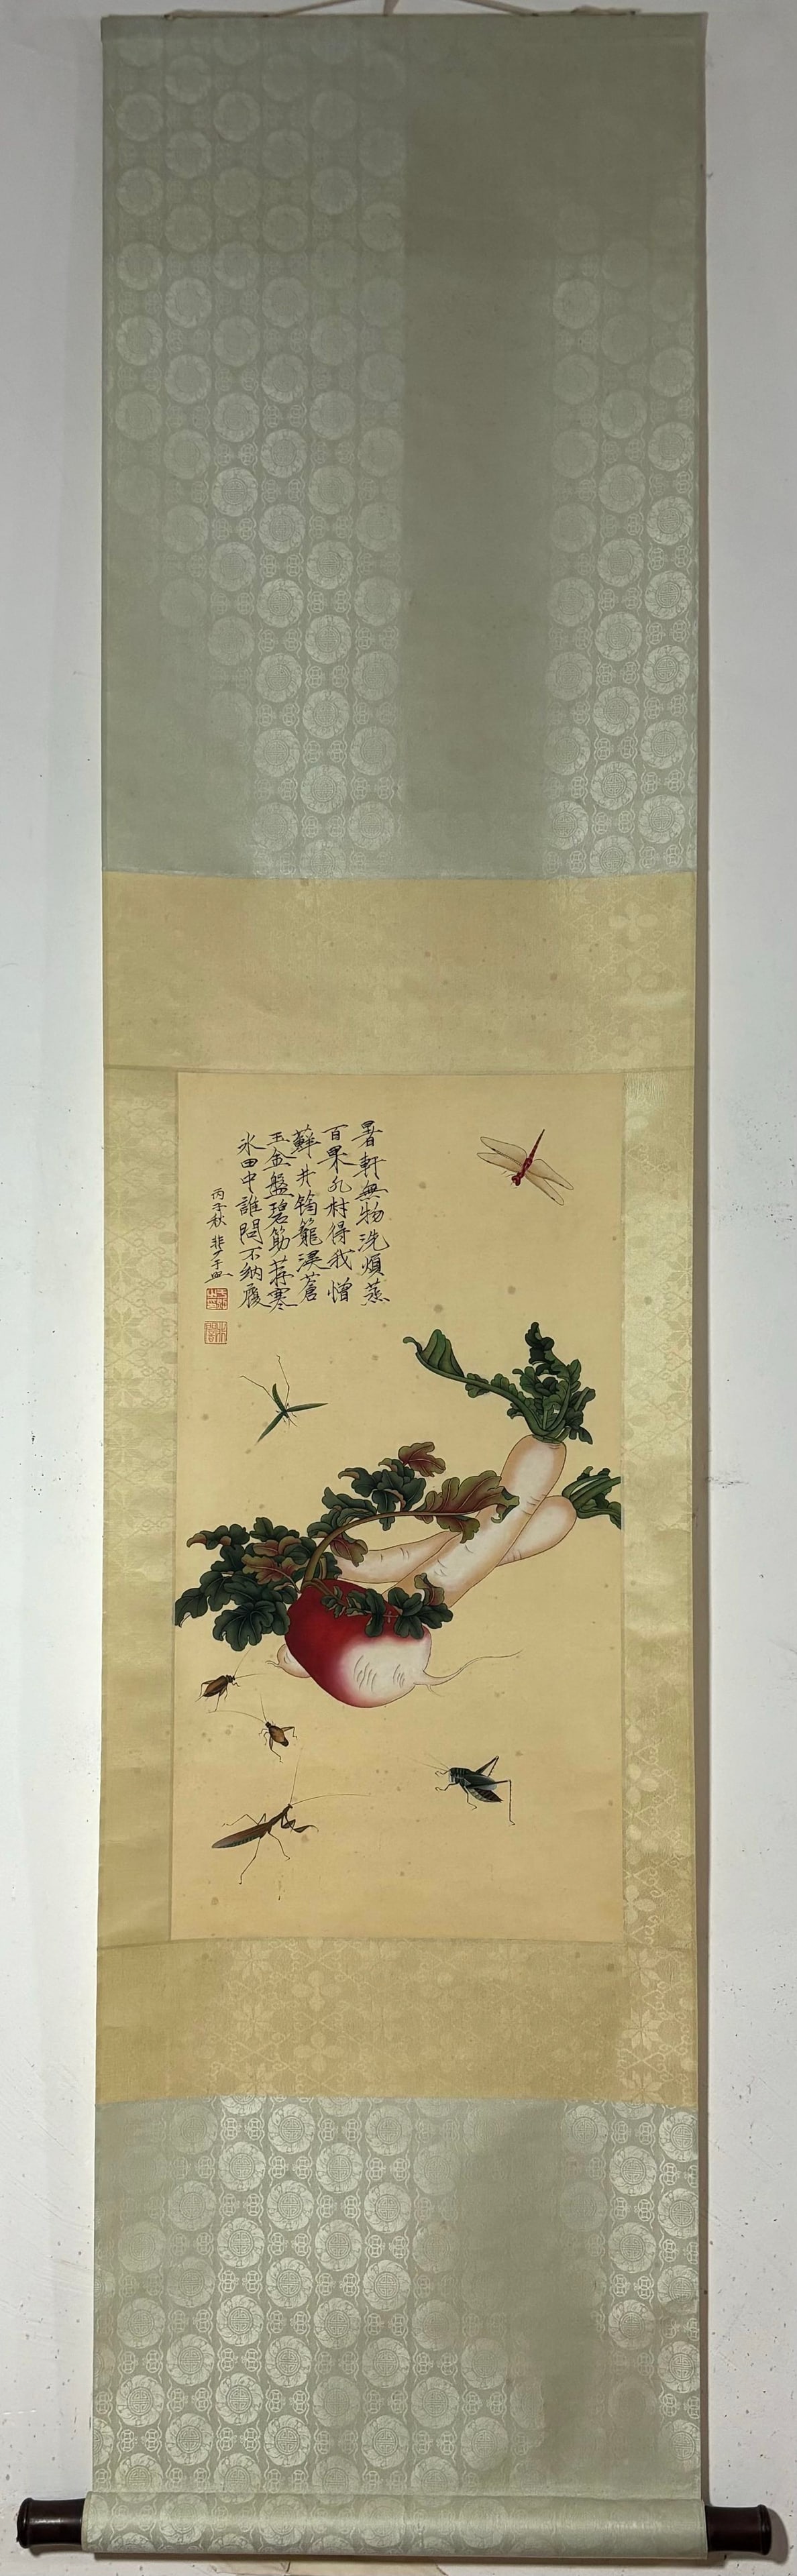 暑軒無物洗煩蒸
百果凡材得我憎
蘚井筠籠浸蒼
玉金盤碧筯薦寒
冰田中誰問不納履
丙子秋非厂于照